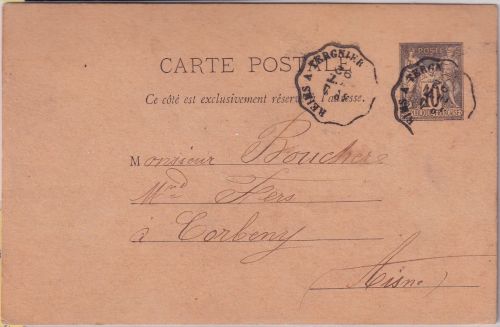 CARTE POSTALE
REIMS A TERGNIER
POSTE
10
REIMS A TERGN
Ce côté est exclusivement réservé à l'adresse.
Monsieur Boucher
Md Fers
à Corbeny
(Aisne)